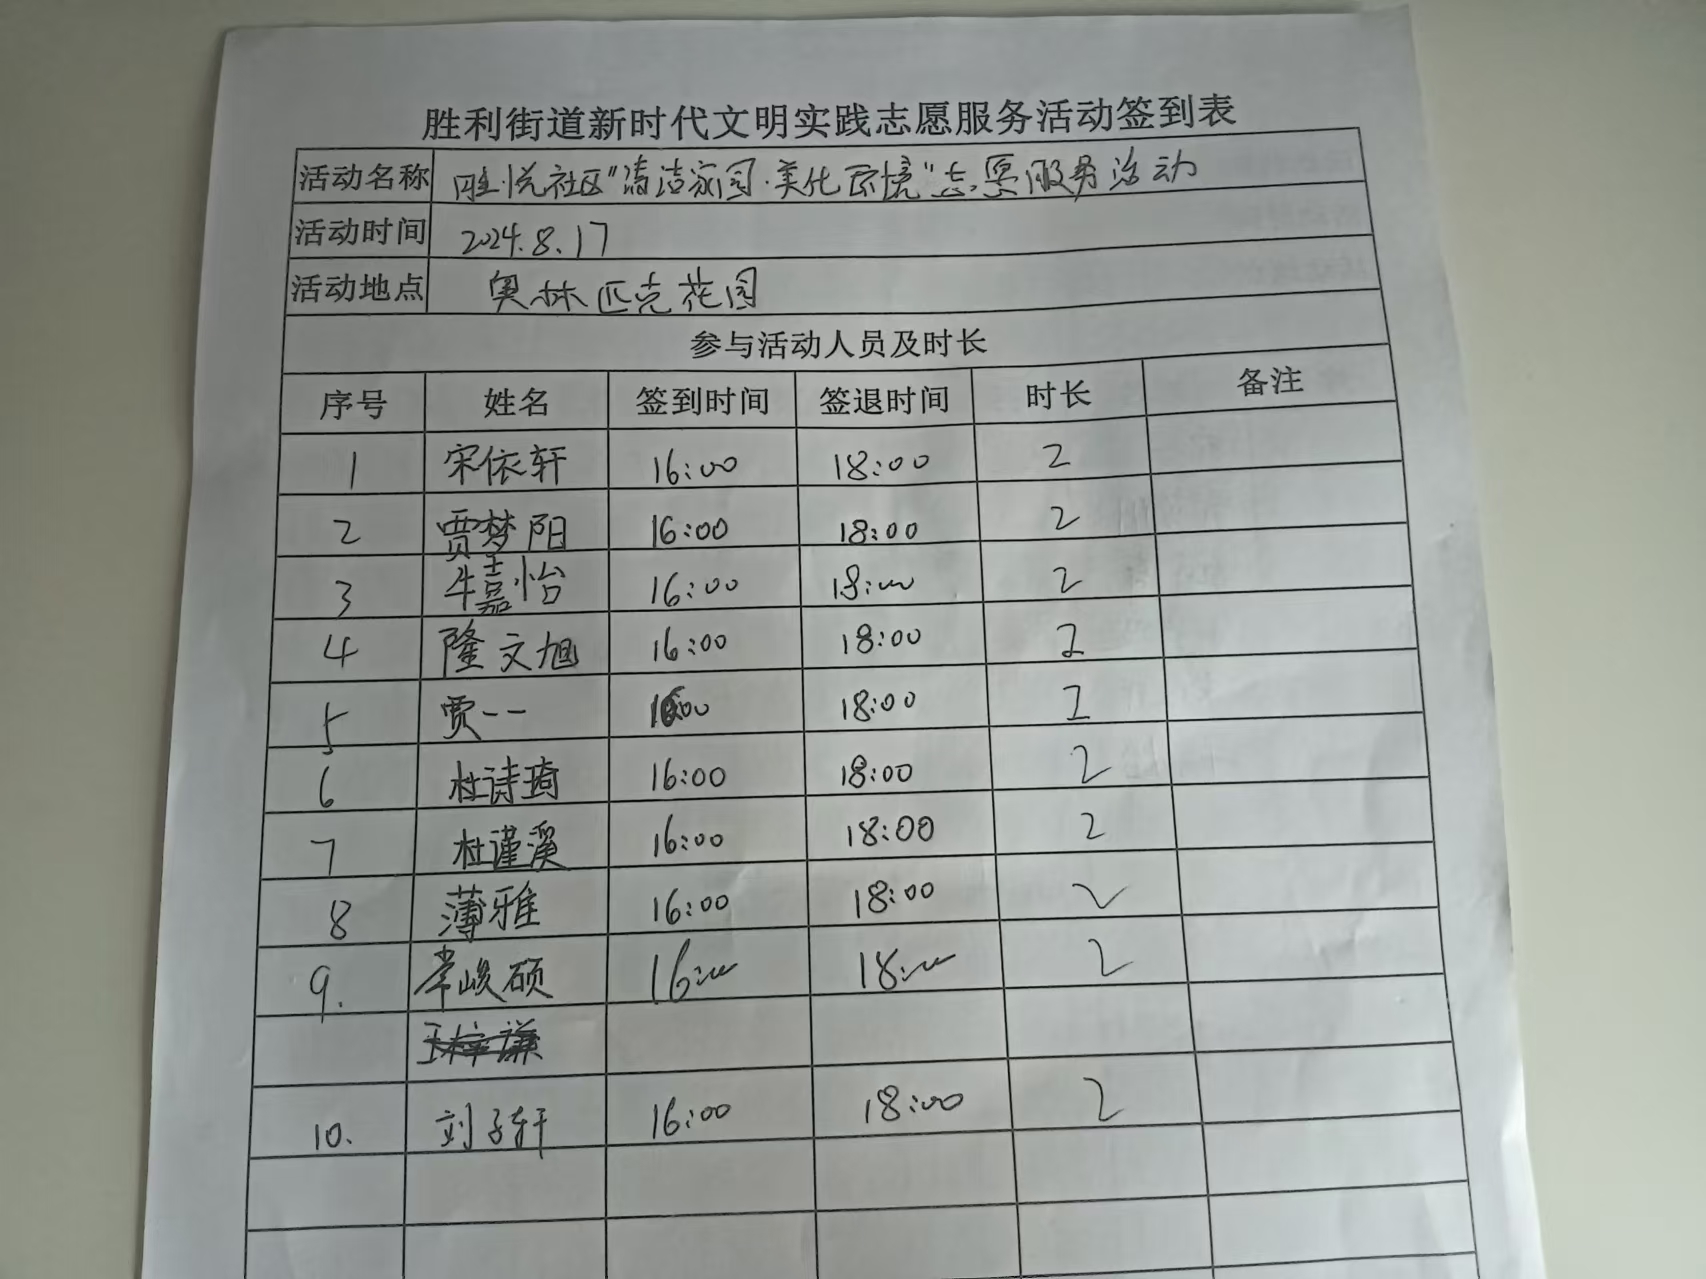 胜利街道新时代文明实践志愿服务活动签到表
活动名称 胜悦社区"清洁家园·美化环境"志愿服务活动
活动时间 2024.8.17
活动地点 奥林匹克花园
参与活动人员及时长
序号 姓名 签到时间 签退时间 时长 备注
1 宋依轩 16:00 18:00 2
2 贾梦阳 16:00 18:00 2
3 牛嘉怡 16:00 18:00 2
4 隆文旭 16:00 18:00 2
5 贾一一 16:00 18:00 2
6 杜诗琦 16:00 18:00 2
7 杜谨溪 16:00 18:00 2
8 薄雅 16:00 18:00 2
9. 常峻硕 16:00 18:00 2
10. 刘子轩 16:00 18:00 2